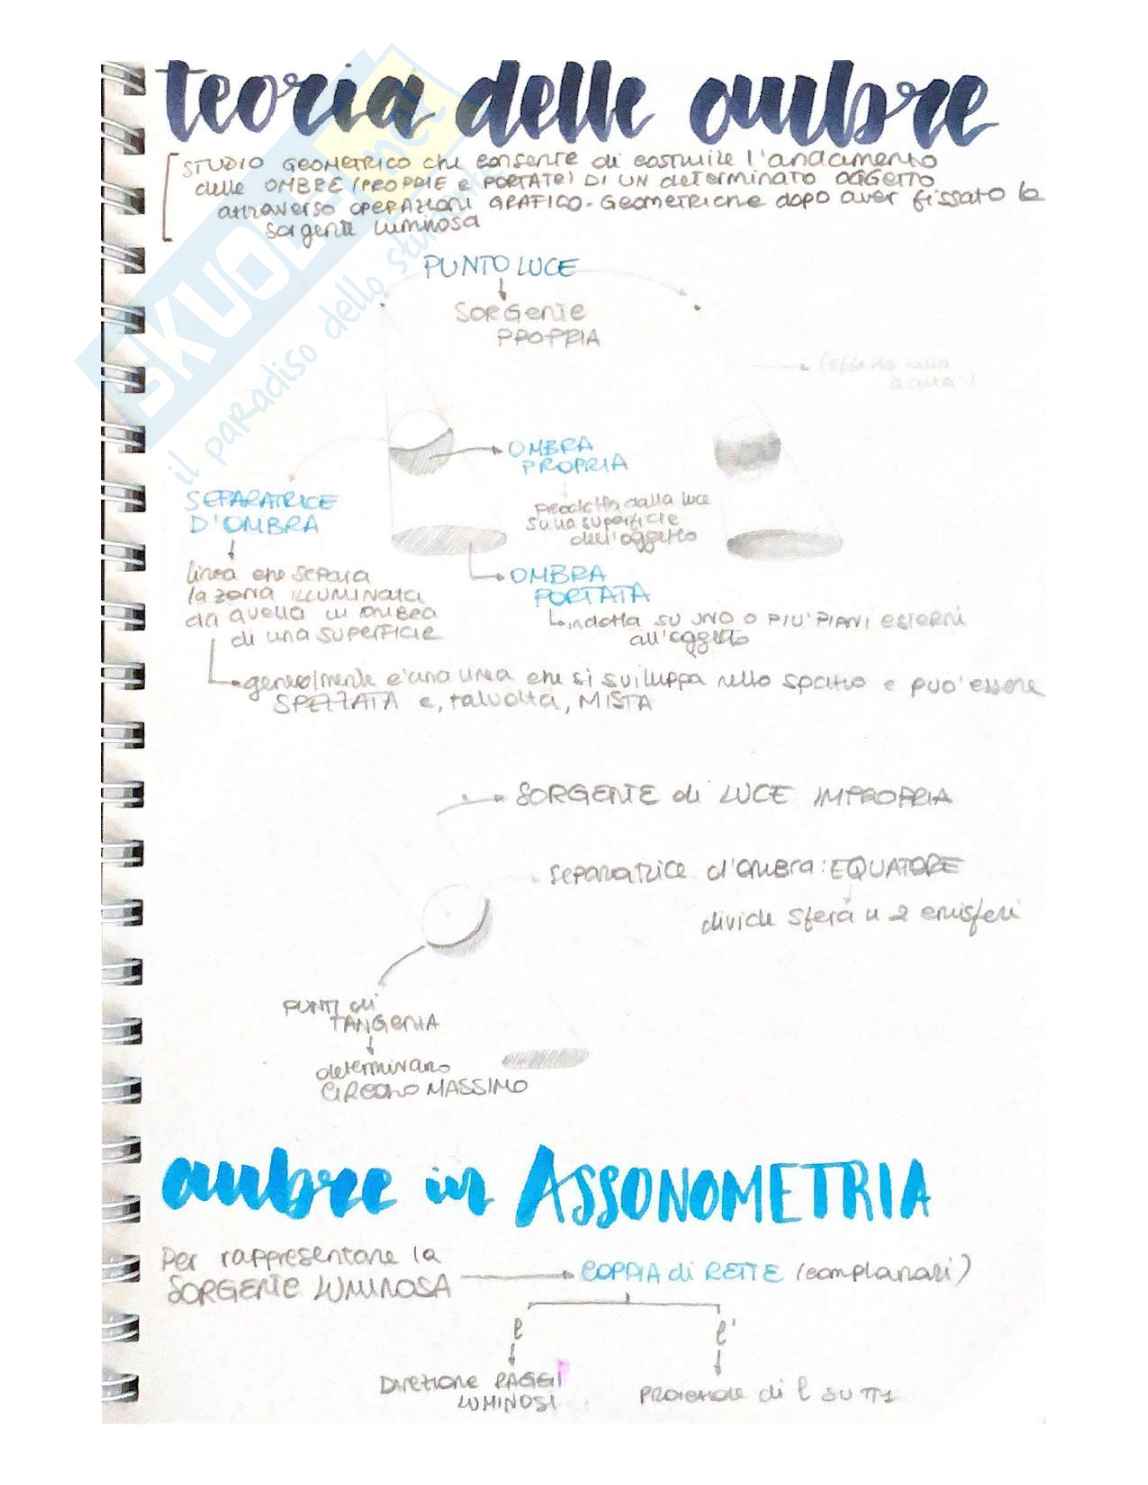 teoria delle ombre
STUDIO GEOMETRICO che consente di costruire l'andamento
delle OMBRE (PROPRIE e PORTATE) DI UN determinato OGGETTO
attraverso OPERAZIONI GRAFICO-GEOMETRICHE dopo aver fissato la
sorgente luminosa
PUNTO LUCE
SORGENTE
PROPRIA
OMBRA
PROPRIA
prodotta dalla luce
sulla superficie
dell'oggetto
SEPARATRICE
D'OMBRA
linea che separa
la zona ILLUMINATA
da quella in ombra
di una SUPERFICIE
OMBRA
PORTATA
indotta SU UNO O PIU' PIANI ESTERNI
all'oggetto
generalmente e' una linea che si sviluppa nello spazio e puo' essere
SPEZZATA e, talvolta, MISTA
SORGENTE di LUCE IMPROPRIA
separatrice d'ombra: EQUATORE
divide sfera in 2 emisferi
PUNTI di
TANGENZA
determinano
CERCHIO MASSIMO
ombre in ASSONOMETRIA
Per rappresentare la
SORGENTE LUMINOSA
COPPIA di RETTE (complanari)
l
l'
Direzione RAGGI
LUMINOSI
PROIEZIONE di l su π1
SKUOLA.net
il paradiso dello studente